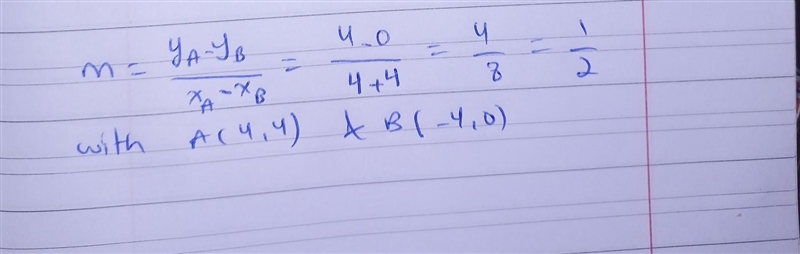 m = \frac{y_A - y_B}{x_A - x_B} = \frac{4-0}{4+4} = \frac{4}{8} = \frac{1}{2}
with A(4,4) & B(-4,0)